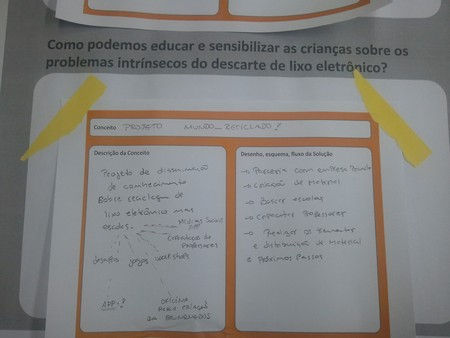 Como podemos educar e sensibilizar as crianças sobre os
problemas intrínsecos do descarte de lixo eletrônico?
Conceito PROJETO MUNDO RECICLADO!
Descrição do Conceito
Projeto de disseminação
de conhecimento
sobre reciclagem de
lixo eletrônico nas
escolas.
Mídias
Capacitação de
professores
desafios jogos workshops
APP!
OFICINA
PARA CRIAÇÃO
DE BRINQUEDOS
Desenho, esquema, fluxo da Solução
→ Parceria com empresa
→ Criação do material
→ Buscar escolas
→ Capacitar Professores
→ Realizar o
e distribuição do Material
→ Próximos Passos